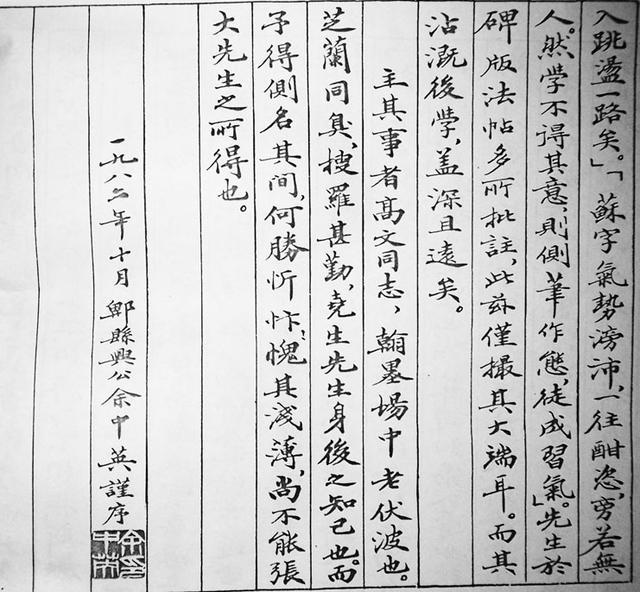 入跳盪一路矣。」「蘇字氣勢滂沛,一往酣恣,旁若無
人。然学不得其意,則側筆作態,徒成習氣」。先生於
碑版法帖多所批註,此茲僅撮其大端耳。而其
沾溉後學,盖深且遠矣。
主其事者高文同志,翰墨場中老伏波也。
芝蘭同臭,搜羅甚勤,堯生先生身後之知己也。而
予得側名其間,何勝忻忭,愧其淺薄,尚不能張
大先生之所得也。
一九八六年十月鄲縣興公余中英謹序
余中英印